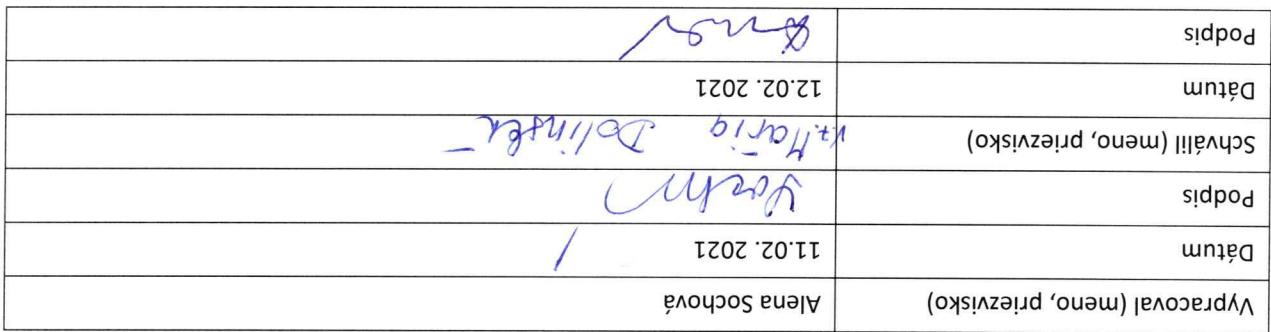 Vypracoval (meno, priezvisko) Alena Sochová
Dátum 11.02. 2021
Podpis
Schválil (meno, priezvisko) v.z. Mária Dolinská
Dátum 12.02. 2021
Podpis